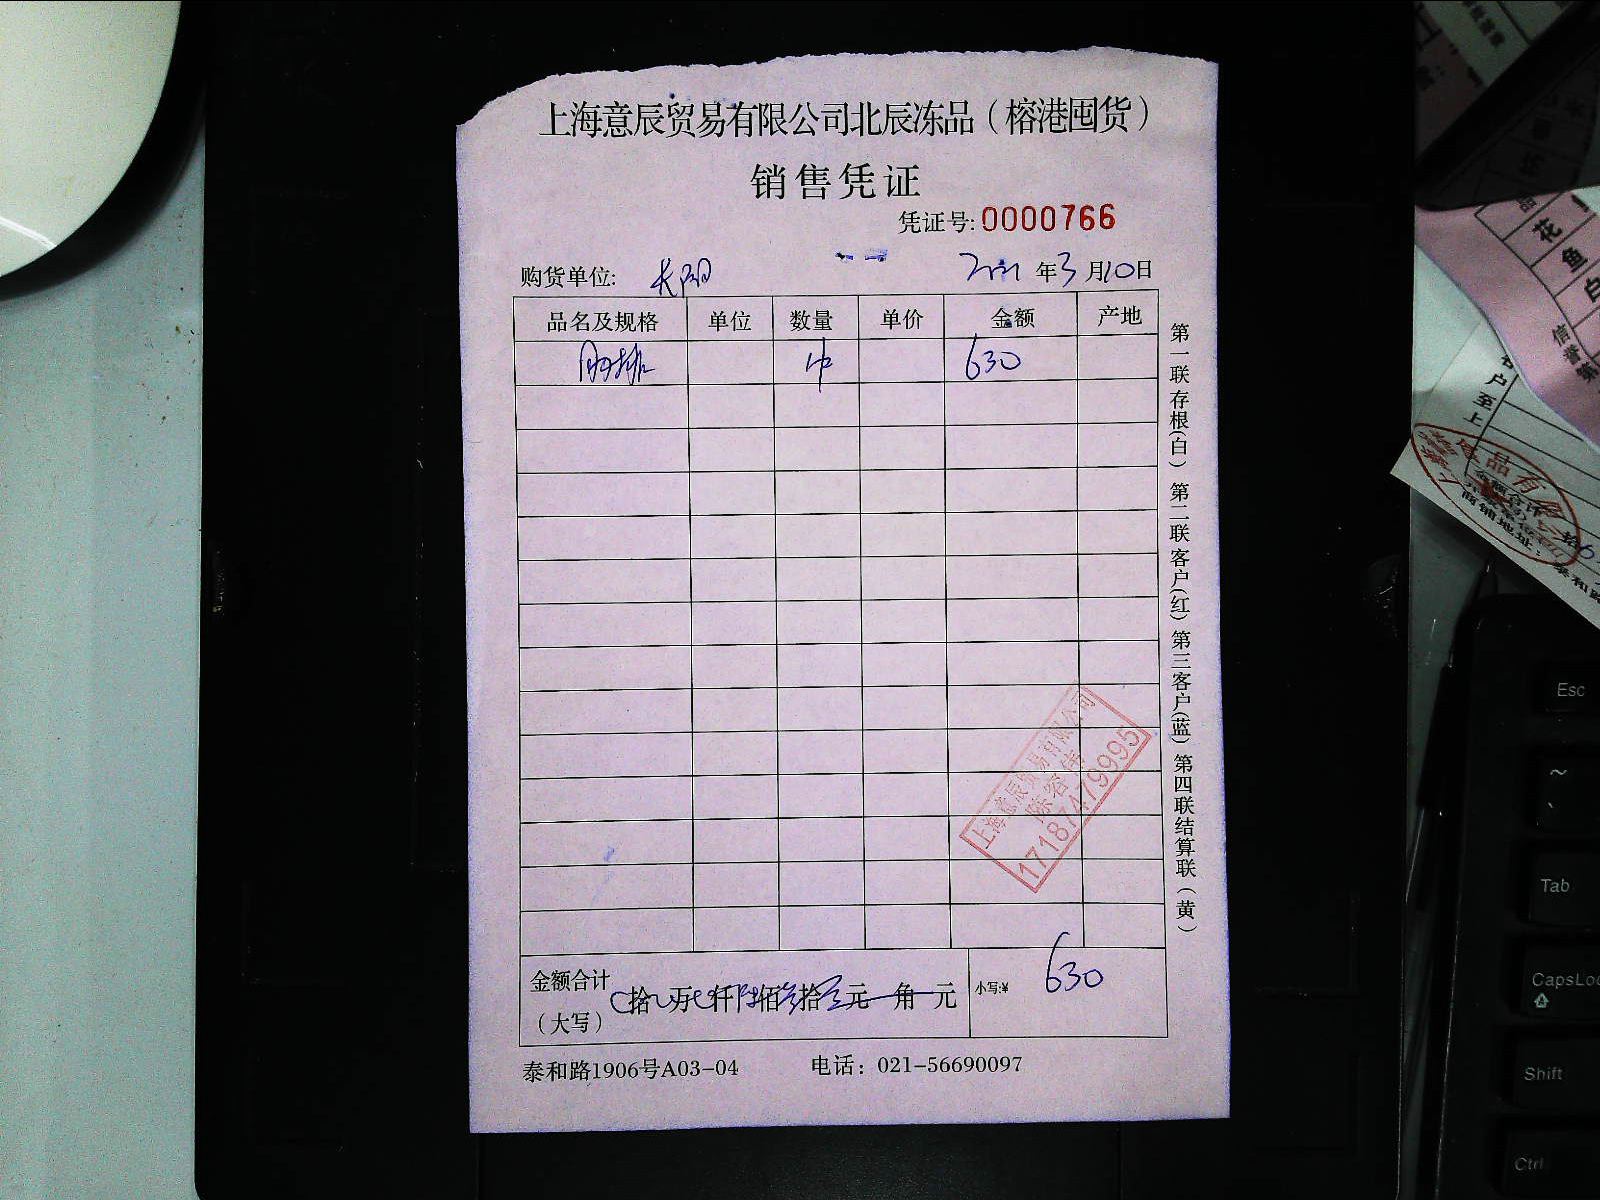 上海意辰贸易有限公司北辰冻品（榕港囤货）
销售凭证
凭证号:0000766
购货单位: 长阳 2021年3月10日
品名及规格 单位 数量 单价 金额 产地
630
金额合计
（大写）
拾 万 仟陆佰叁拾 元 角 元
小写:¥ 630
泰和路1906号A03-04 电话：021-56690097
第一联存根(白) 第二联客户(红) 第三客户(蓝) 第四联结算联(黄)
上海意辰贸易有限公司
17187479995
花
鱼
信誉第
客户至上
品有限
商铺地址：泰和路
Esc
~
Tab
CapsLoc
Shift
Ctrl